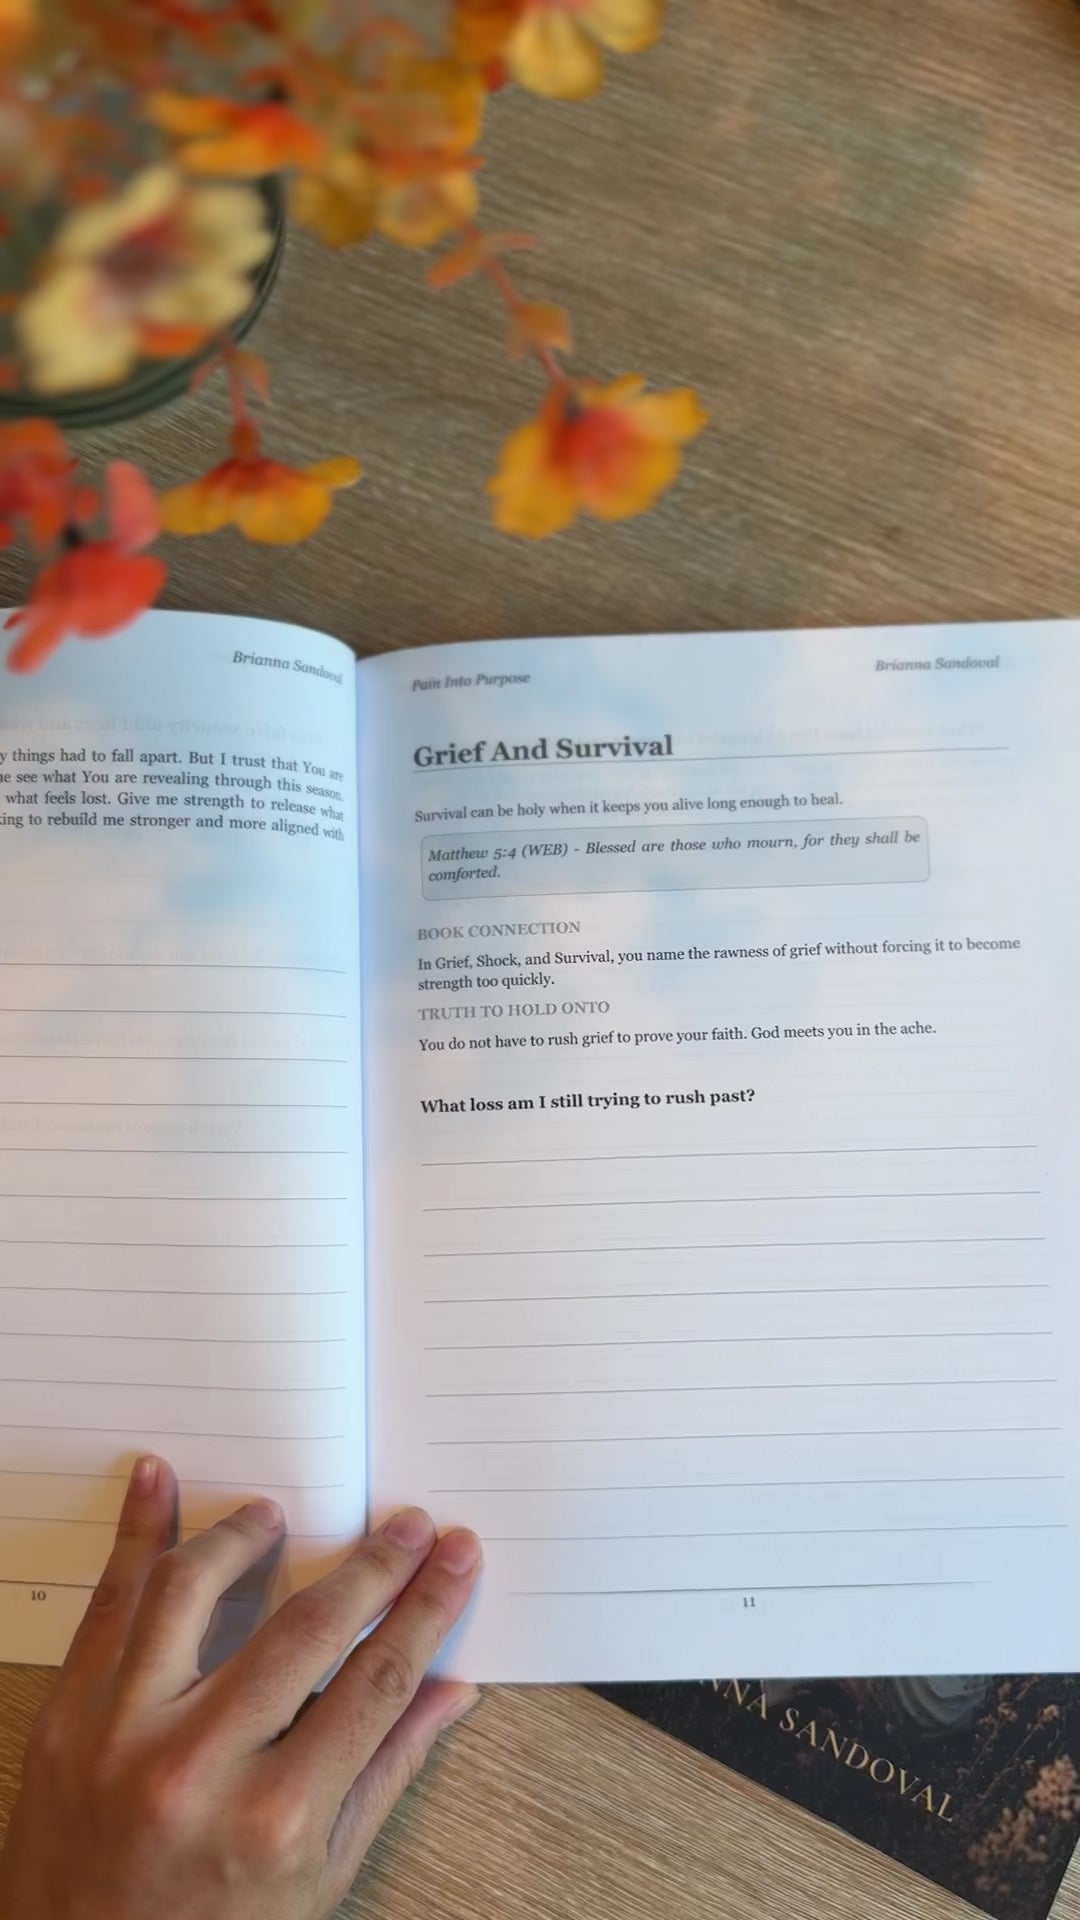 Brianna Sandoval
y things had to fall apart. But I trust that You are
e see what You are revealing through this season.
what feels lost. Give me strength to release what
ing to rebuild me stronger and more aligned with
10
Pain Into Purpose
Brianna Sandoval
Grief And Survival
Survival can be holy when it keeps you alive long enough to heal.
Matthew 5:4 (WEB) - Blessed are those who mourn, for they shall be
comforted.
BOOK CONNECTION
In Grief, Shock, and Survival, you name the rawness of grief without forcing it to become
strength too quickly.
TRUTH TO HOLD ONTO
You do not have to rush grief to prove your faith. God meets you in the ache.
What loss am I still trying to rush past?
11
NNA SANDOVAL